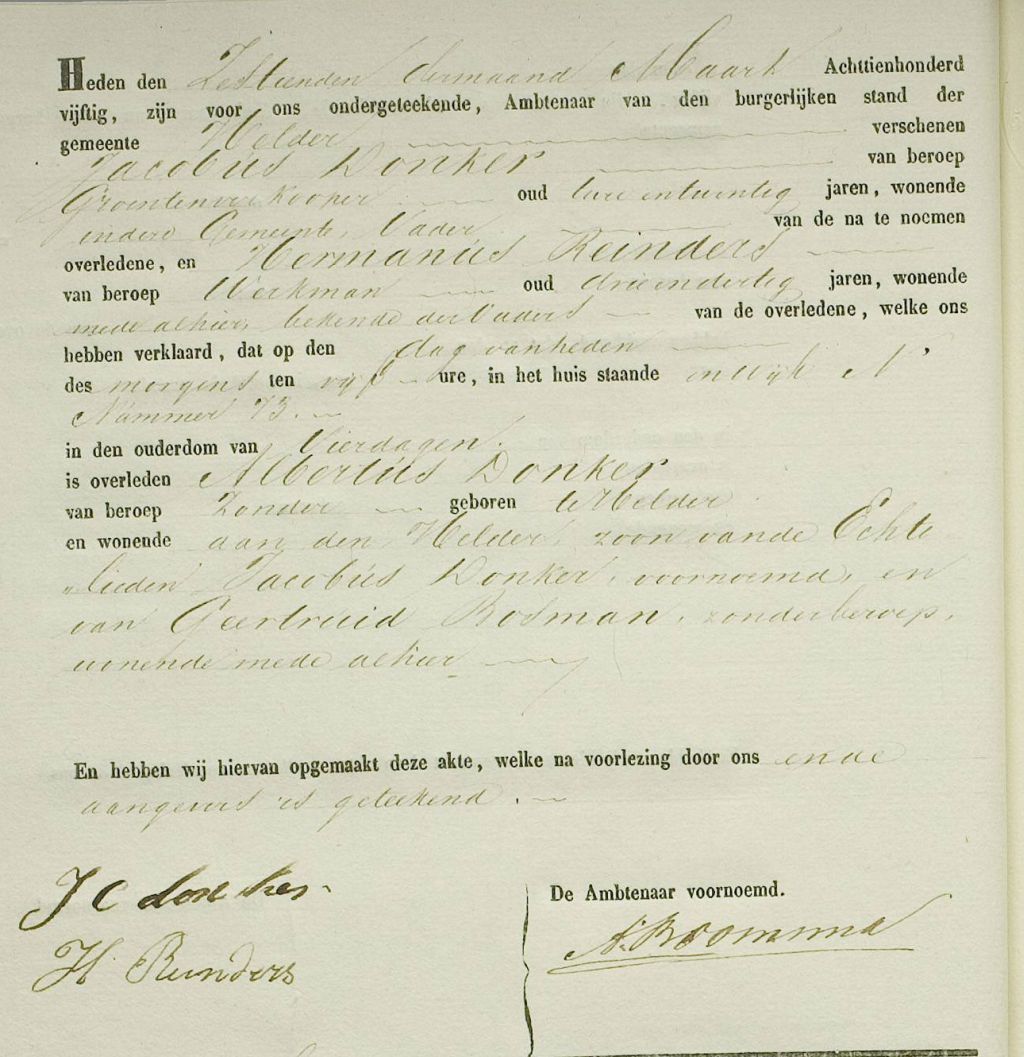 Heden den Zestienden dermaand Maart Achttienhonderd
vijftig, zijn voor ons ondergeteekende, Ambtenaar van den burgerlijken stand der
gemeente Helder verschenen
Jacobus Donker van beroep
Groentenverkooper oud twee entwintig jaren, wonende
indere Gemeente, Vader van de na te noemen
overledene, en Hermanus Reinders
van beroep Werkman oud drieendertig jaren, wonende
mede alhier, bekende der Vaders van de overledene, welke ons
hebben verklaard, dat op den dag van heden
des morgens ten vijf ure, in het huis staande in Wijk N
Nummer 73.
in den ouderdom van Vier dagen.
is overleden Albertus Donker
van beroep Zonder geboren te Helder
en wonende aan den Helder, zoon van de Echte
"lieden Jacobus Donker, voornoemd, en
van Geertruid Bosman, zonder beroep,
wonende mede alhier
En hebben wij hiervan opgemaakt deze akte, welke na voorlezing door ons en de
aangevers is geteekend.
J C donker
H. Reinders
De Ambtenaar voornoemd.